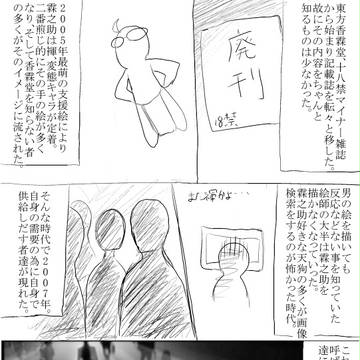 東方香霖堂、十八禁マイナー雑誌
から始まり記載誌を転々と移した。
故にその内容をちゃんと
知るものは少なかった。
廃刊
18禁
2005年最萌の支援絵により
霖之助は褌・変態キャラが定着。
二番煎じ的にその手の絵が多く
なり、そして香霖堂を知らない者
の多くがそのイメージに流された。
男の絵を描いても
反応などない事を知っていた
絵師の大半は霖之助を
描かなくなっていった。
霖之助好きな天狗の多くが画像
検索をするのが怖かった時代。
また褌かよ…
そんな時代で2007年。
自身の需要の為に自身で
供給しだす者達が現れた。
呼ば
達に